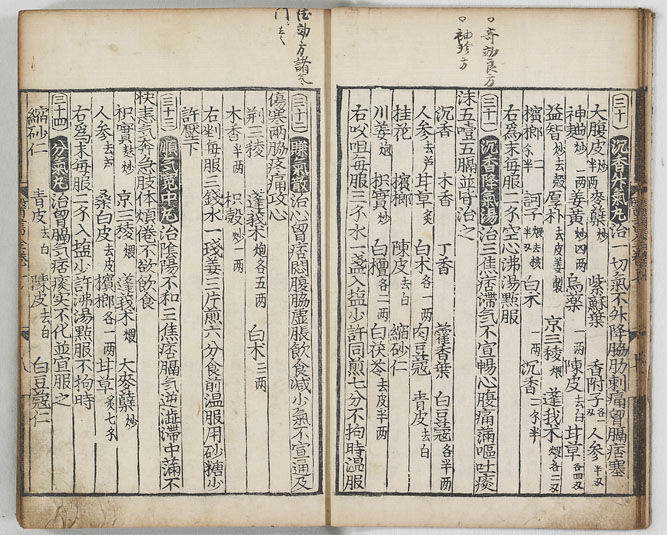 奇効良方
袖珍方
三十 沉香升氣丸 治一切氣不升降脇肋刺痛胷膈痞塞
大腹皮炒半两 麦蘗炒一两 紫蘇葉 香附子各一 人参半两
神麯炒一两 姜黄炒四两 烏藥一两 陳皮去白 甘草各四两
益智炒去殼 厚朴去皮姜製 京三稜煨 蓬莪术煨各二两
檳榔二个半 訶子煨去核半两 白术一两 沉香二个半
右為末每服二个空心沸湯點服
三十一 沉香降氣湯 治三焦痞滞气不宣暢心腹痛滿嘔吐痰
沫五噎五膈並皆治之
沉香 木香 丁香 藿香葉 白豆蔻各半两
人参去芦 甘草炙 白术各一两 肉豆蔻 青皮去白
桂花 檳榔 陳皮去白 縮砂仁
川姜炒 枳實炒 白檀各二两 白茯苓去皮半两
右㕮咀每服三个水一盞入塩少許同煎七分不拘時温服
効方諸気
門云云
三十二 氣散 治心胷痞悶腹脇虛脹飲食减少氣不宣通及
傷寒兩脇疼痛攻心
荆三稜 蓬莪术炮各五两 白术三两
木香半两 枳殼炒一两
右剉每服三錢水一琖姜三片煎六分食前温服用砂糖少
許壓下
三十三 順氣寛中丸 治陰陽不和三焦痞膈气逆澁滞中滿不
快恚气奔急肢体煩倦不欲飲食
枳實麸炒 京三稜煨 蓬莪术煨 大麥蘗炒
人参去芦 桑白皮去皮 檳榔各一两 甘草炙七个
右爲末每服二个入塩少許沸湯點服不拘時
三十四 分氣丸 治胷膈气痞痰实不化並宜服之
縮砂仁 青皮去白 陳皮去白 白豆蔻仁